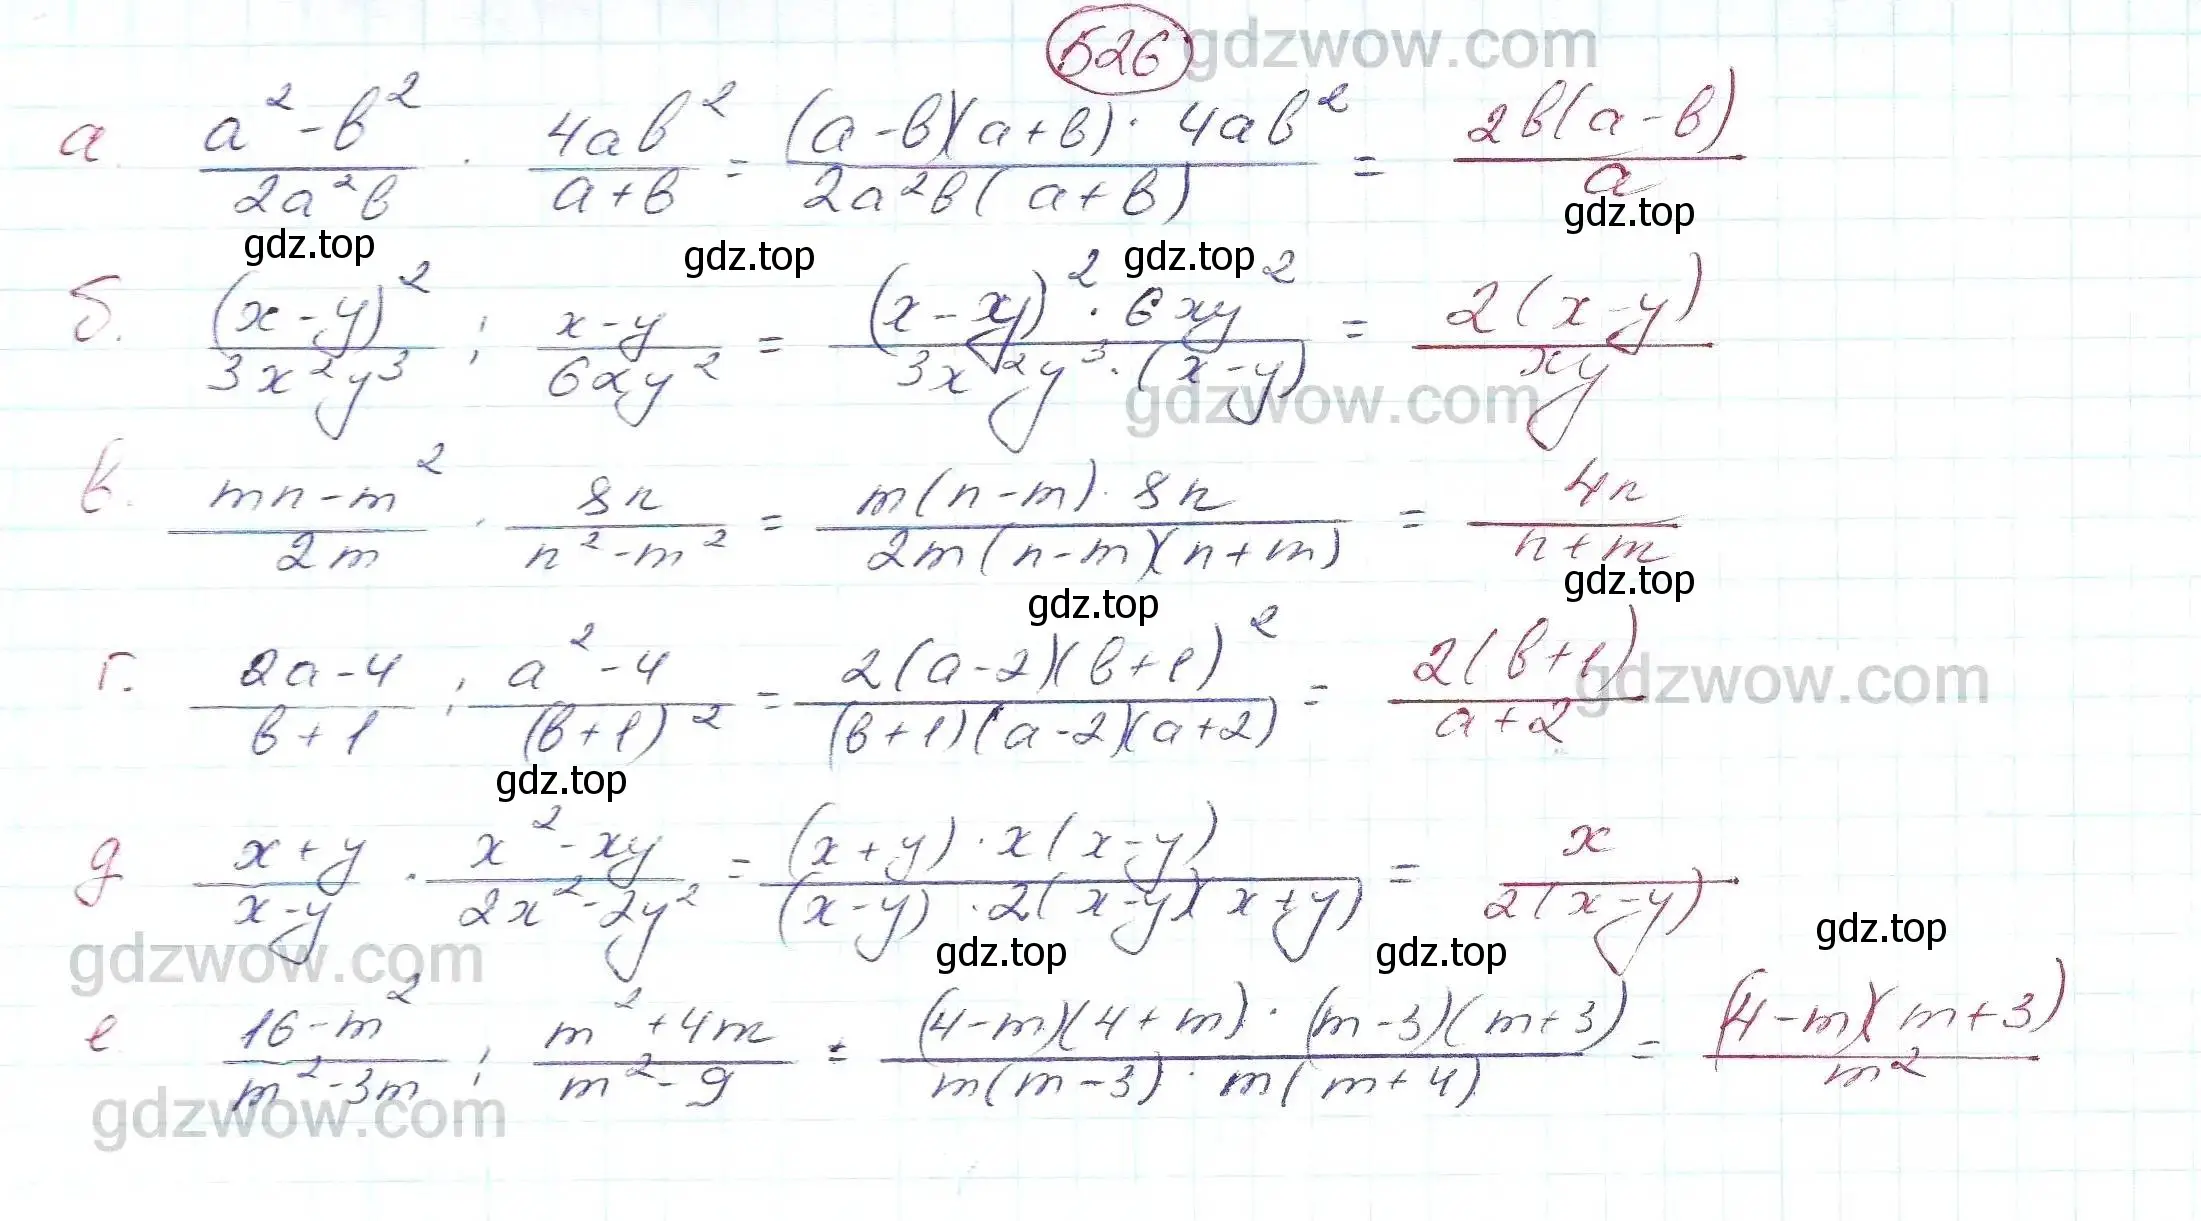 526 gdzwow.com
а. \frac{a^2-b^2}{2a^2b} \cdot \frac{4ab^2}{a+b} = \frac{(a-b)(a+b) \cdot 4ab^2}{2a^2b(a+b)} = \frac{2b(a-b)}{a}
gdz.top gdz.top gdz.top gdz.top
б. \frac{(x-y)^2}{3x^2y^3} : \frac{x-y}{62y^2} = \frac{(x-xy)^2 \cdot 6xy^2}{3x^2y^3 \cdot (x-y)} = \frac{2(x-y)}{xy}
gdzwow.com
в. \frac{mn-m^2}{2m} \cdot \frac{8n}{n^2-m^2} = \frac{m(n-m) \cdot 8n}{2m(n-m)(n+m)} = \frac{4n}{n+m}
gdz.top gdz.top
г. \frac{2a-4}{b+1} : \frac{a^2-4}{(b+1)^2} = \frac{2(a-2)(b+1)^2}{(b+1)(a-2)(a+2)} = \frac{2(b+1)}{a+2}
gdzwow.com
gdz.top
д \frac{x+y}{x-y} \cdot \frac{x^2-xy}{2x^2-2y^2} = \frac{(x+y) \cdot x(x-y)}{(x-y) \cdot 2(x-y)(x+y)} = \frac{x}{2(x-y)}
gdzwow.com gdz.top gdz.top gdz.top
е \frac{16-m^2}{m^2-3m} : \frac{m^2+4m}{m^2-9} = \frac{(4-m)(4+m) \cdot (m-3)(m+3)}{m(m-3) \cdot m(m+4)} = \frac{(4-m)(m+3)}{m^2}
gdzwow.com